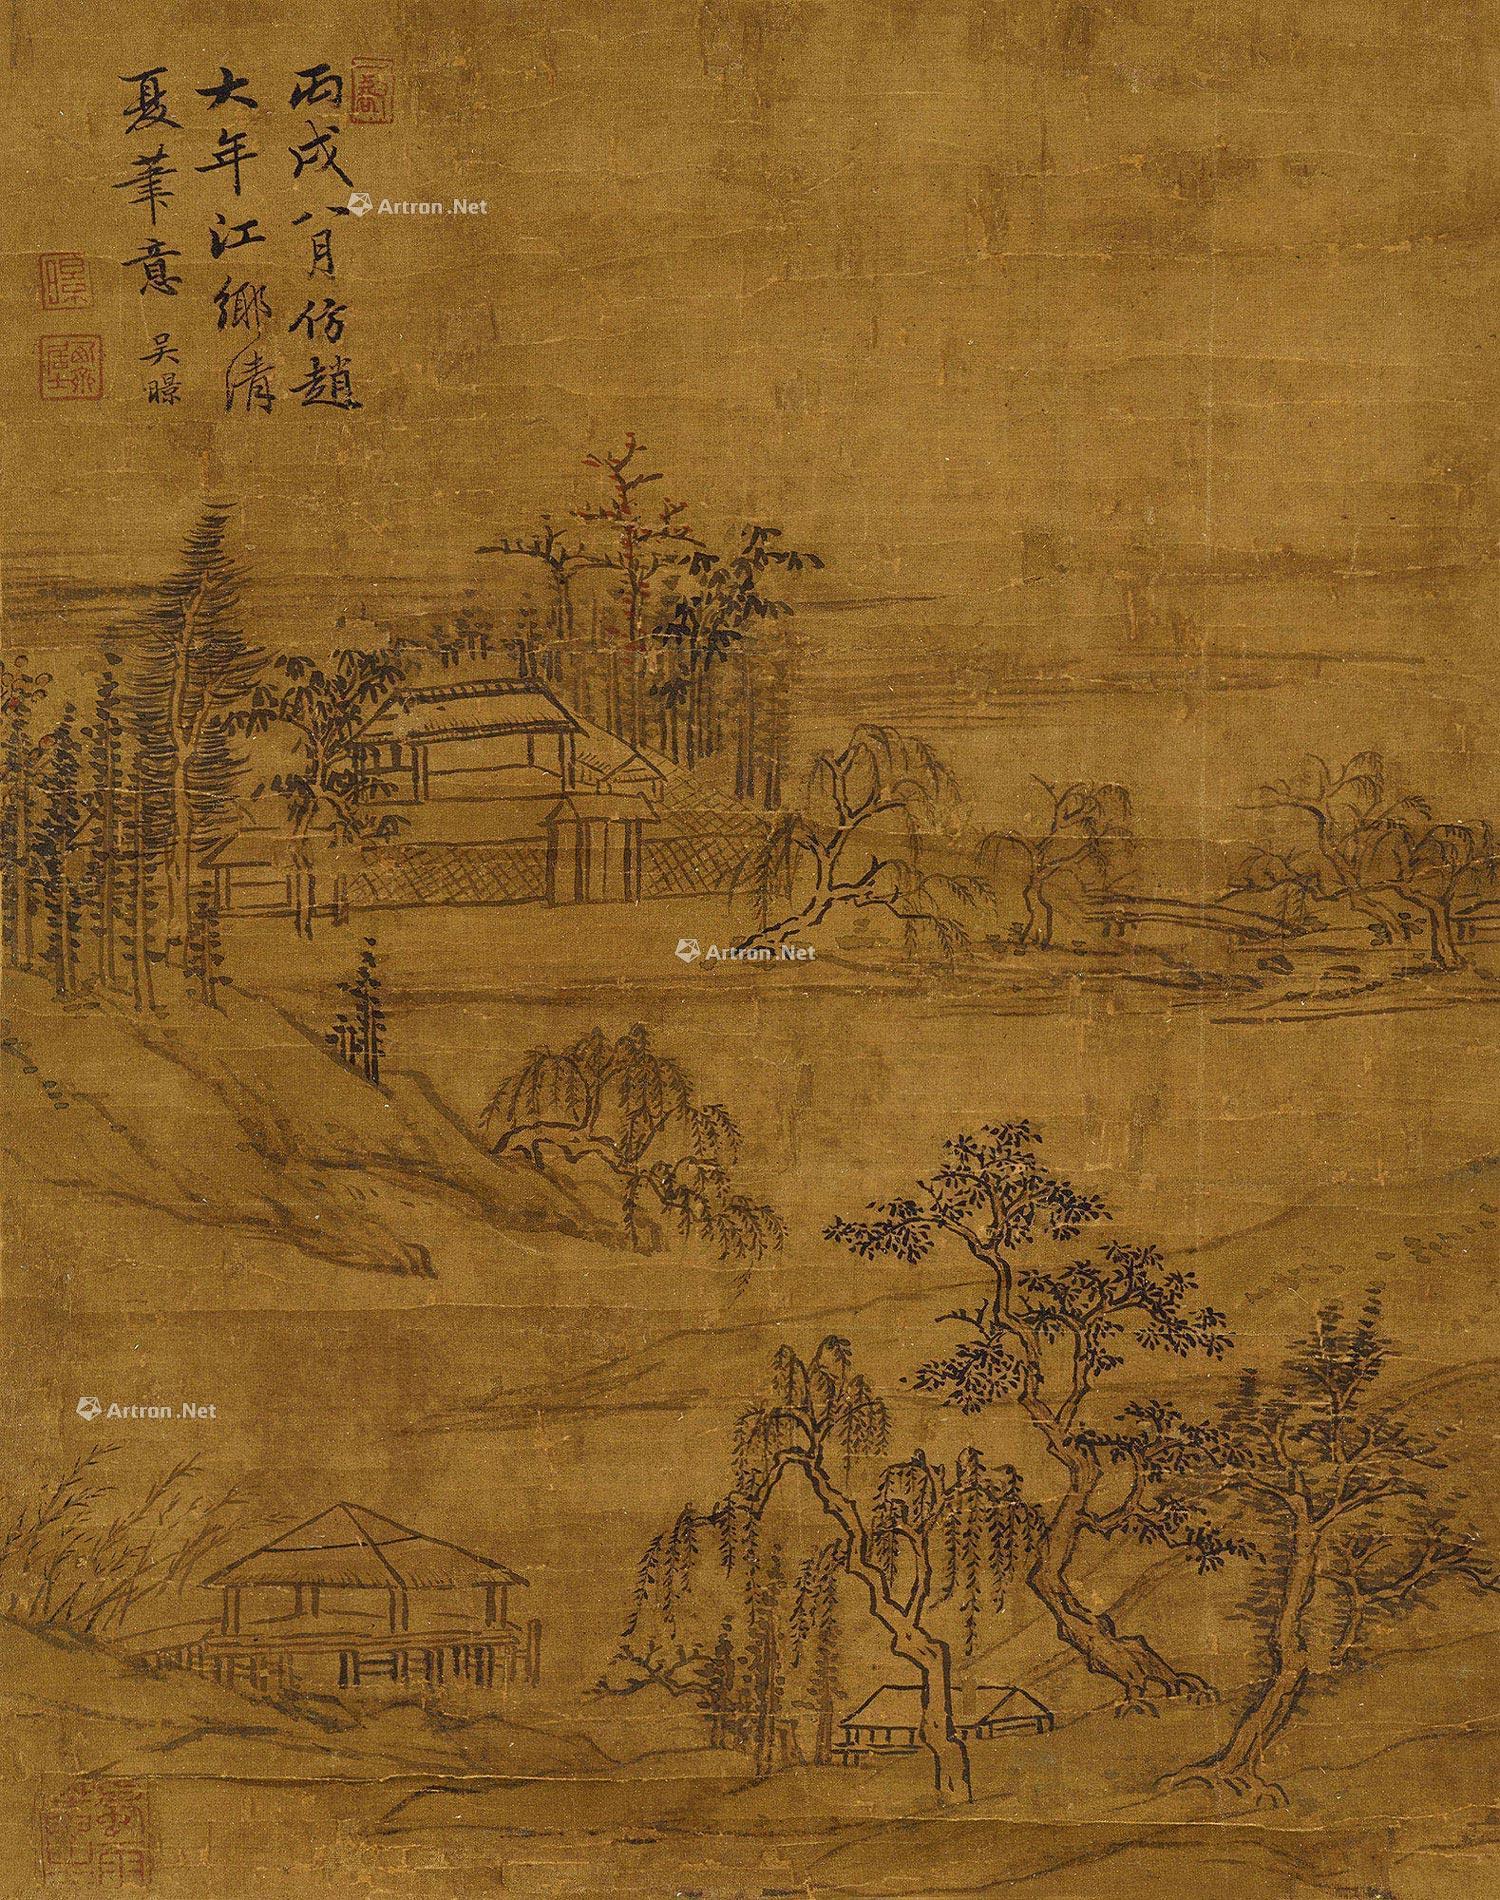 丙戌八月仿趙
大年江鄉清
夏筆意
吳暻
暻
Artron.Net
Artron.Net
Artron.Net